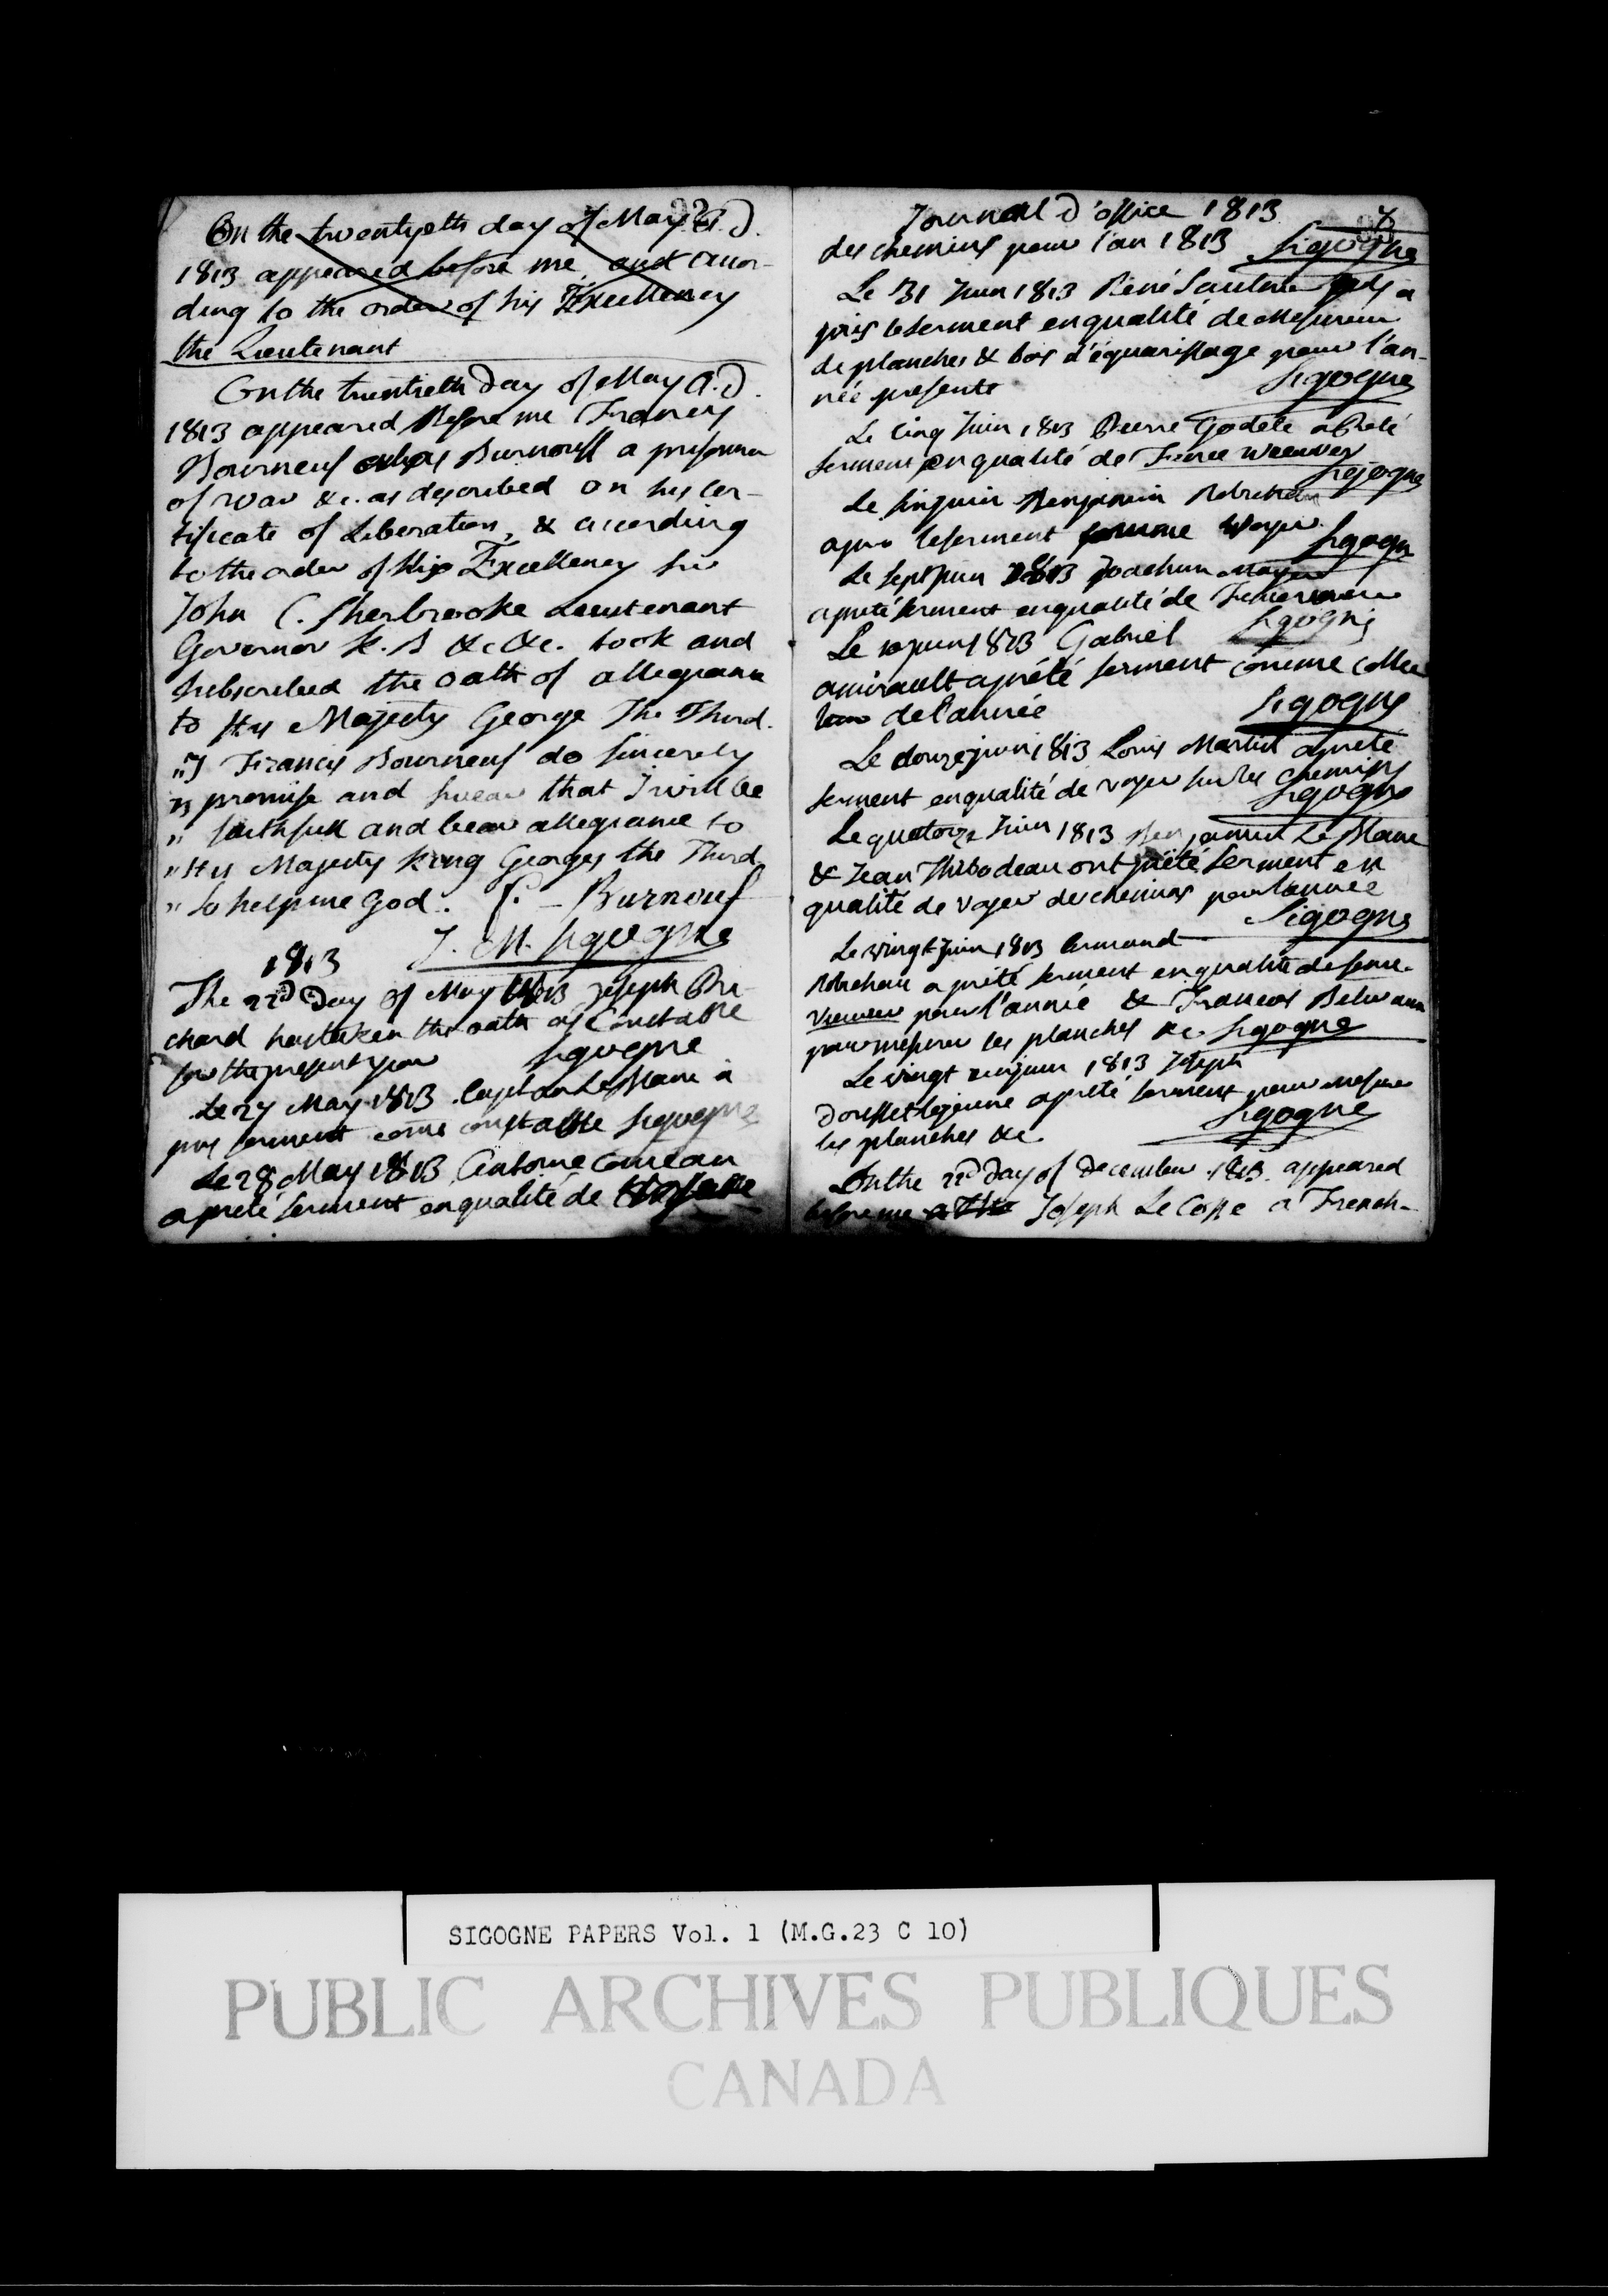 On the twentyeth day of May A.D.
1813 appeared before me, and accor-
ding to the order of his Excellency
the Lieutenant
On the twentieth Day of May A.D.
1813 appeared Before me Francis
Bourneuf Burnouff a prisoner
of War &c. as described on his Cer-
tificate of Liberation, & according
to the order of His Excellency Sir
John C. Sherbrooke Lieutenant
Governor K.B &c &c. took and
subscribed the oath of allegiance
to His Majesty George The Third.
"I Francis Bourneuf do sincerely
" promise and swear that I will be
" faithfull and bear allegiance to
" His Majesty King Georges the Third
" So help me God. f. - Burnouf
J. M. Sigogne
1813
The 22d Day of May 1813 Joseph Pri-
chard has taken the oath as Constable
for the present year Sigogne
Le 27 May 1813. Le Blanc a
pris serment come constable Sigogne
Le 28 May 1813 Antoine Comeau
a preté serment en qualité de
93
Journal D'office 1813
des chemins pour l'an 1813 Sigogne
Le 31 Juin 1813 René Saulnier a
pris le serment en qualité de Mesureur
de planches & bois d'équarissage pour l'an-
née presente Sigogne
Le Cinq Juin 1813 Pierre Godete a Preté
serment en qualité de Fence viewer
Sigogne
Le six juin Benjamin Robichau
a pris le serment comme Voyer Sigogne
Le sept Juin 1813 Joachim
a preté serment en qualité de Fence viewer
Sigogne
Le 10 juin 1813 Gabriel
amirault a prété serment comme Collec
teur de l'année Sigogne
Le douze juin 1813 Louis Martin a preté
serment en qualité de voyer sur les chemins
Sigogne
Le quatorze Juin 1813 Benjamin Le Blanc
& Jean Thibodeau ont prété serment en
qualité de voyer de chemins pour l'année
Sigogne
Le vingt Juin 1813 Armand
Robichau a prété serment en qualité de fence-
viewer pour l'année & Francois Beliveau
pour mesurer les planches &c. Sigogne
Le vingt juin 1813 Joseph
Doucet le jeune a preté serment pour mesurer
les planches &c. Sigogne
On the 22d Day of December 1813. appeared
before me Joseph Le Cosse a French-
SIGOGNE PAPERS Vol. 1 (M.G.23 C 10)
PUBLIC ARCHIVES PUBLIQUES
CANADA